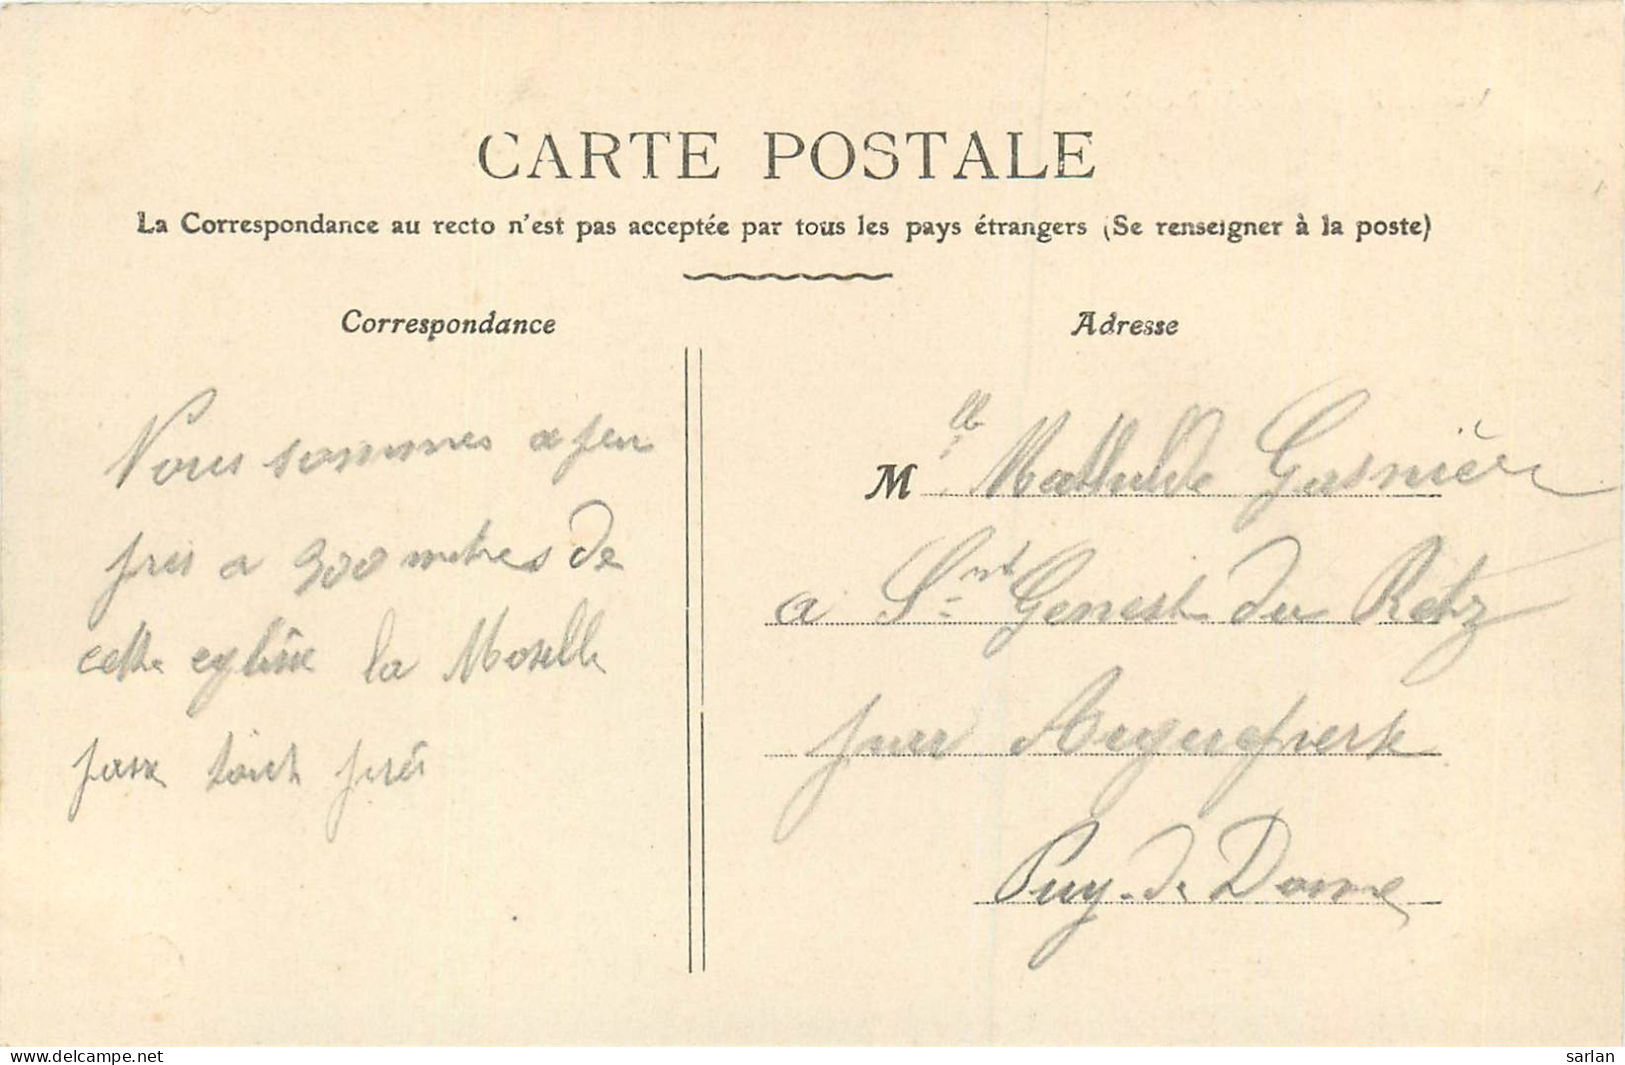 CARTE POSTALE
La Correspondance au recto n'est pas acceptée par tous les pays étrangers (Se renseigner à la poste)
Correspondance
Nous sommes a peu
pres a 300 metres de
cette eglise la Moselle
passe tout près
Adresse
Mlle Mathilde Gasnière
a Snt Genest du Retz
par Aigueperse
Puy-de Dome
www.delcampe.net
sarlan